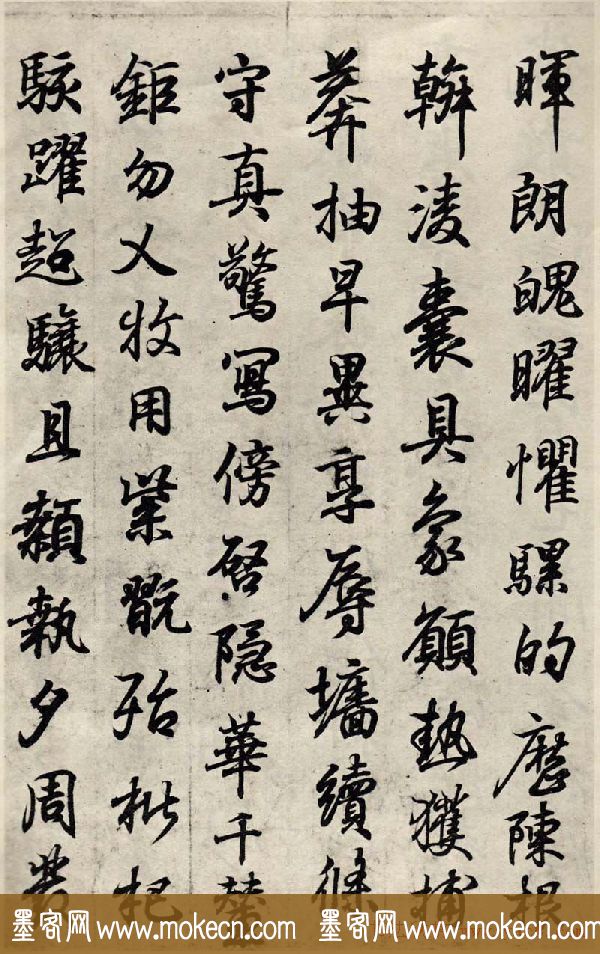 暉朗魄曜懼騾的歷陳根
淩囊具象願熱獲捕
莽抽早異享辱墻續條
守真驚寫傍啓隱華千
鉅勿乂牧用業翫殆枇杷
駭躍超驤且顙執夕周
墨客网 www.mokecn.com 墨客网 www.mokecn.com